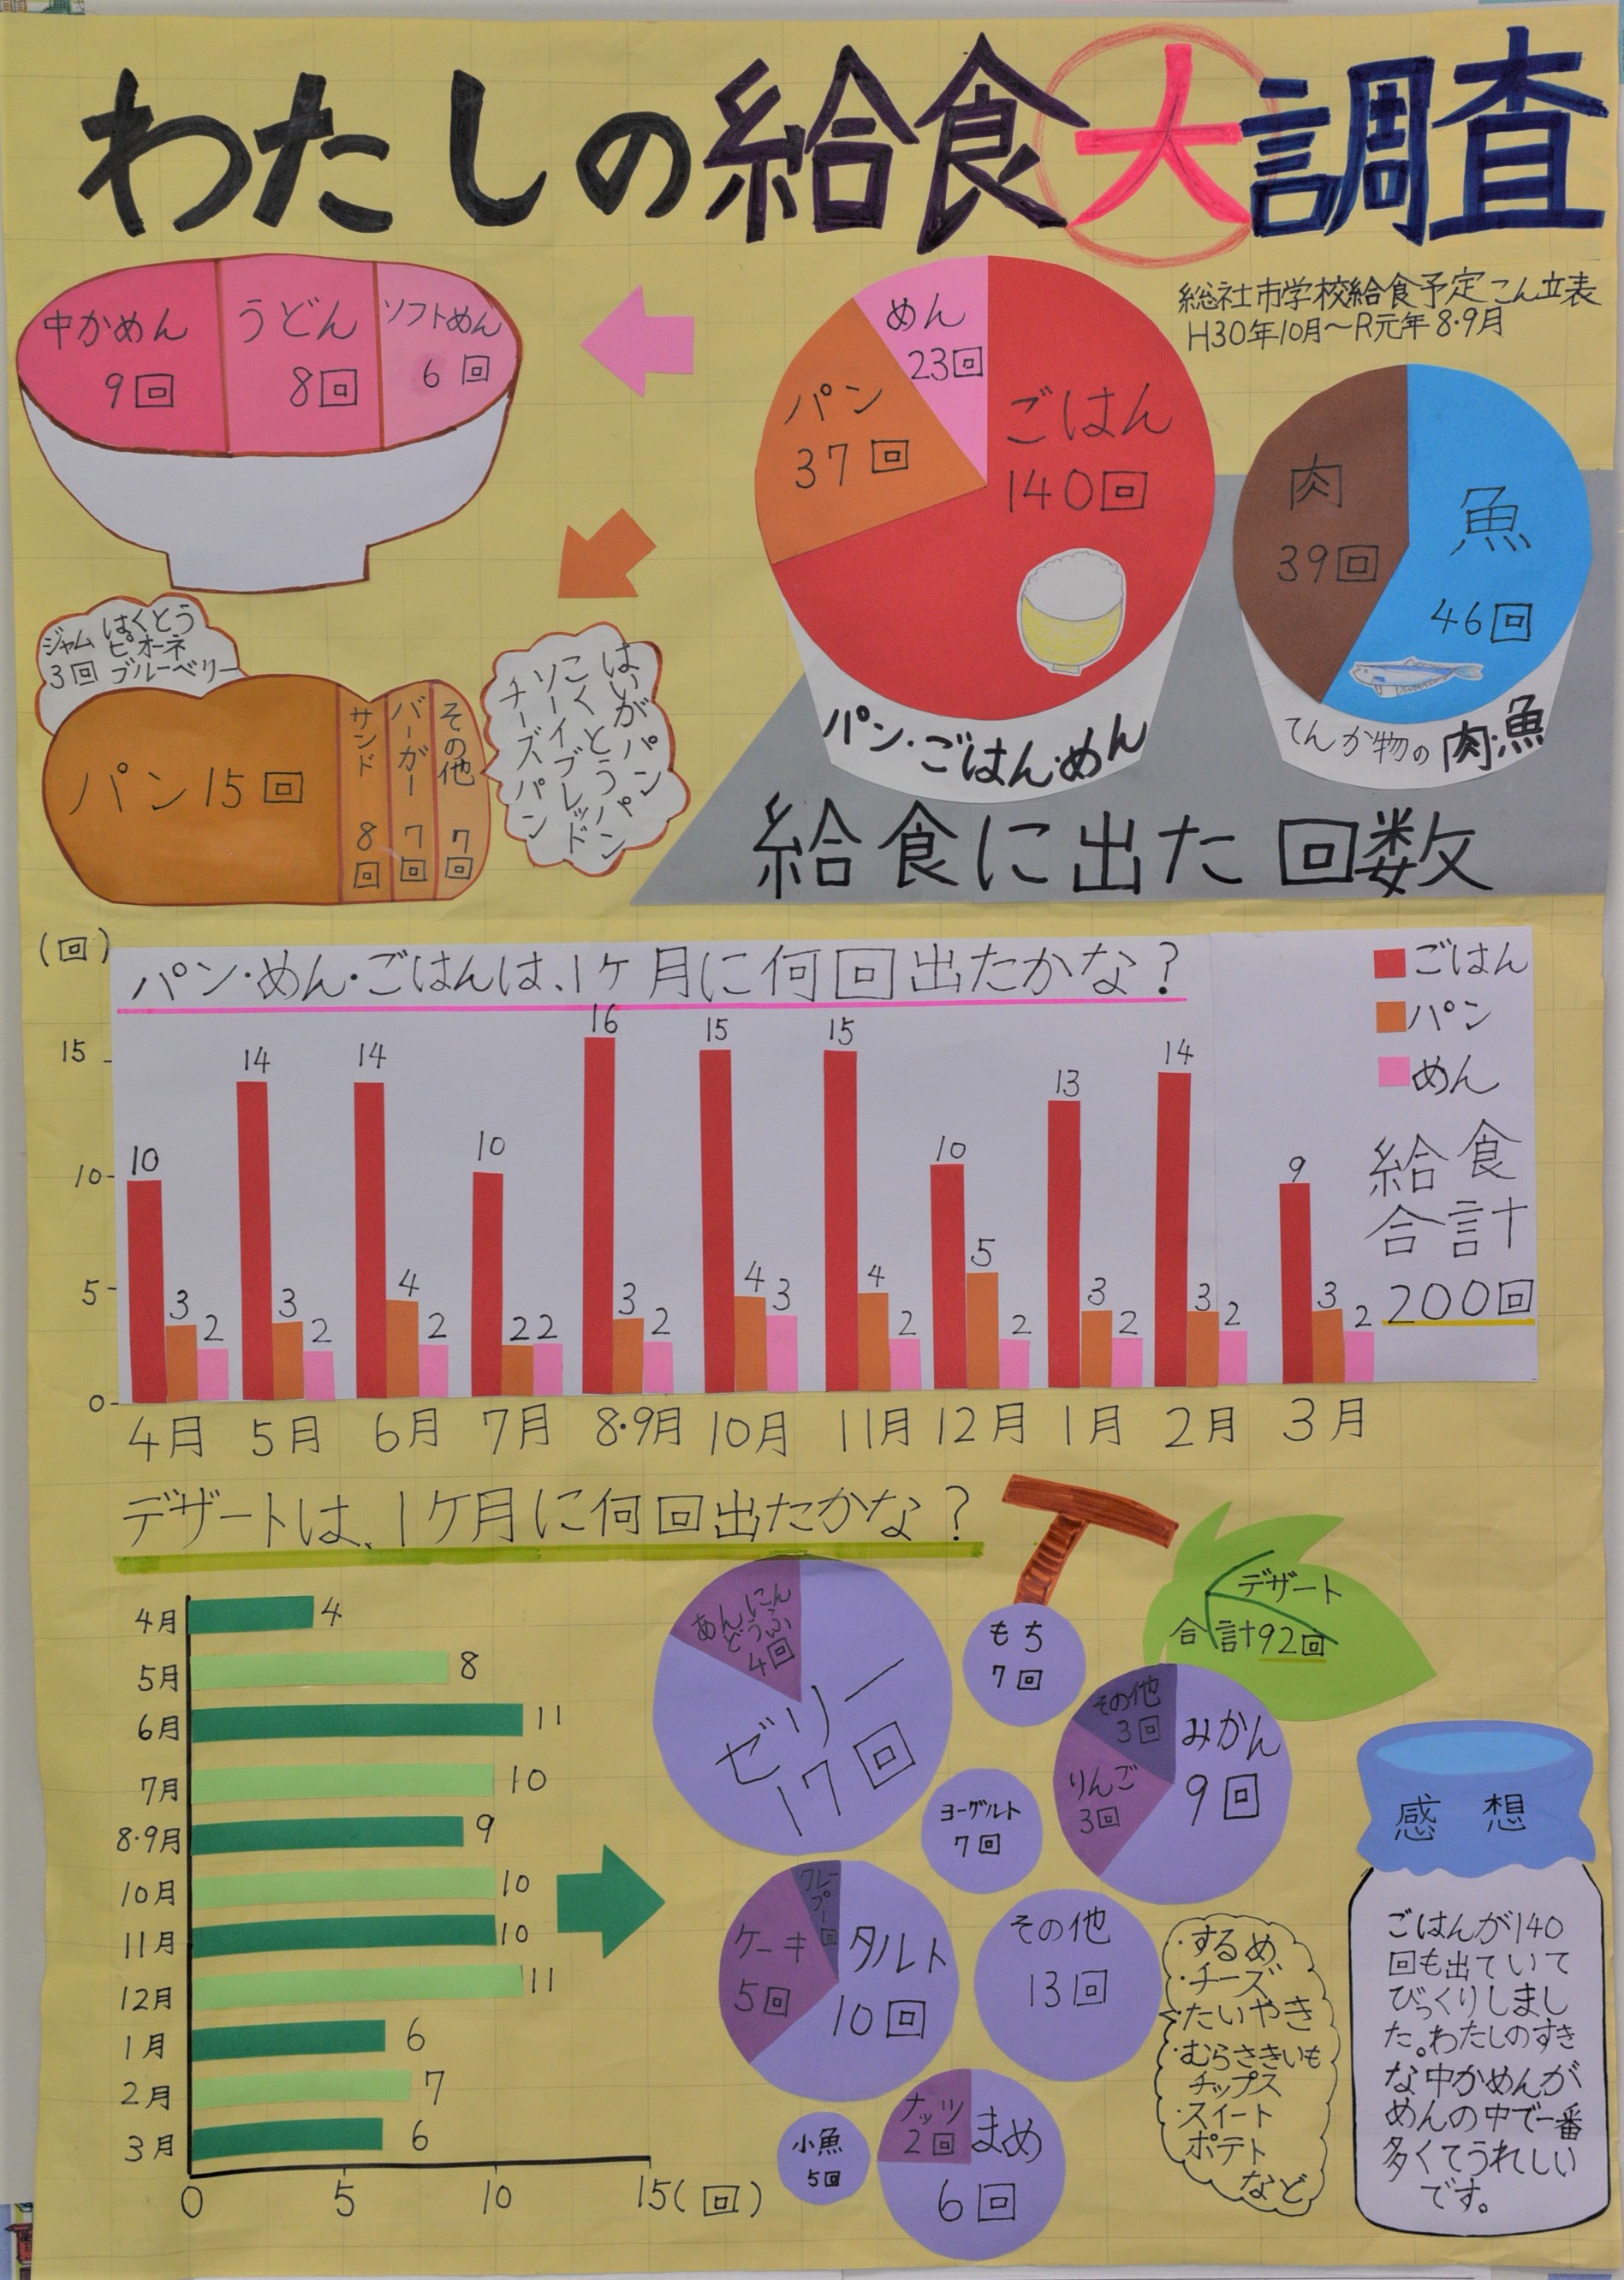 わたしの給食大調査
総社市学校給食予定こん立表
H30年10月～R元年8・9月
中かめん
9回
うどん
8回
ソフトめん
6回
めん
23回
パン
37回
ごはん
140回
パン・ごはん・めん
肉
39回
魚
46回
てんか物の肉・魚
給食に出た回数
ジャム
3回
はくとう
ピオーネ
ブルーベリー
パン15回
サンド
8回
バーガー
7回
その他
7回
はいがパン
こくとうパン
ソーイブレッド
チーズパン
(回)
パン・めん・ごはんは、1ヶ月に何回出たかな？
ごはん
パン
めん
給食
合計
200回
15
10
5
0
10 3 2
14 3 2
14 4 2
10 2 2
16 3 2
15 4 3
15 4 2
10 5 2
13 3 2
14 3 2
9 3 2
4月 5月 6月 7月 8・9月 10月 11月 12月 1月 2月 3月
デザートは、1ケ月に何回出たかな？
4月 4
5月 8
6月 11
7月 10
8・9月 9
10月 10
11月 10
12月 11
1月 6
2月 7
3月 6
0 5 10 15(回)
デザート
合計92回
あんにん
どうふ
4回
ゼリー
17回
もち
7回
その他
3回
りんご
3回
みかん
9回
ヨーグルト
7回
クレープ
1回
ケーキ
5回
タルト
10回
その他
13回
・するめ
・チーズ
・たいやき
・むらさきいも
チップス
・スイート
ポテト
など
小魚
5回
ナッツ
2回
まめ
6回
感想
ごはんが140
回も出ていて
びっくりしまし
た。わたしのすき
な中かめんが
めんの中で一番
多くてうれしい
です。